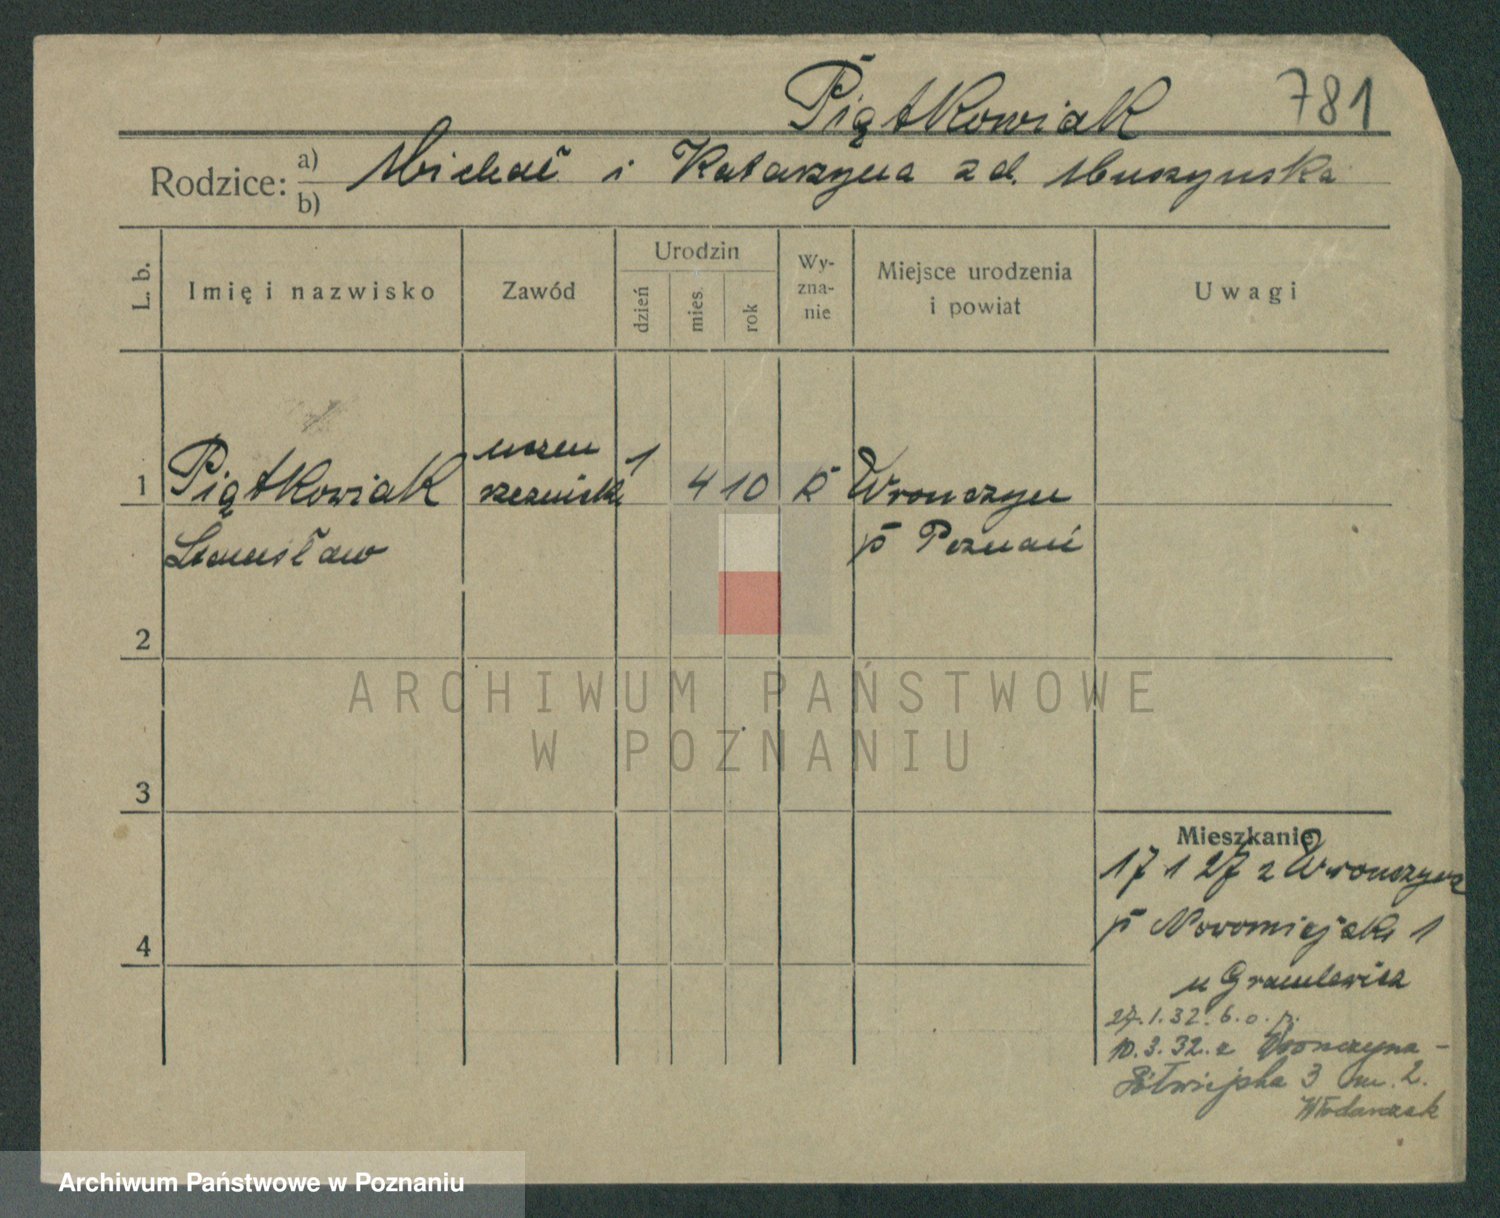 Piątkowiak 781
Rodzice: a) Michał i Katarzyna z d. Muszyńska
b)
L. b.
Imię i nazwisko
Zawód
Urodzin
dzień
mies.
rok
Wy-
zna-
nie
Miejsce urodzenia
i powiat
Uwagi
1 Piątkowiak uczeń rzeźnick 1 4 10 k Wronczyn
Stanisław p Poznań
2
3
4
ARCHIWUM PAŃSTWOWE
W POZNANIU
Mieszkanie
17 1 27 z Wronczyna
p Nowomiejsk 1
u
27.1.32. b.o.
10.3.32. z Wronczyna -
3 m. 2.
Włodarczak
Archiwum Państwowe w Poznaniu